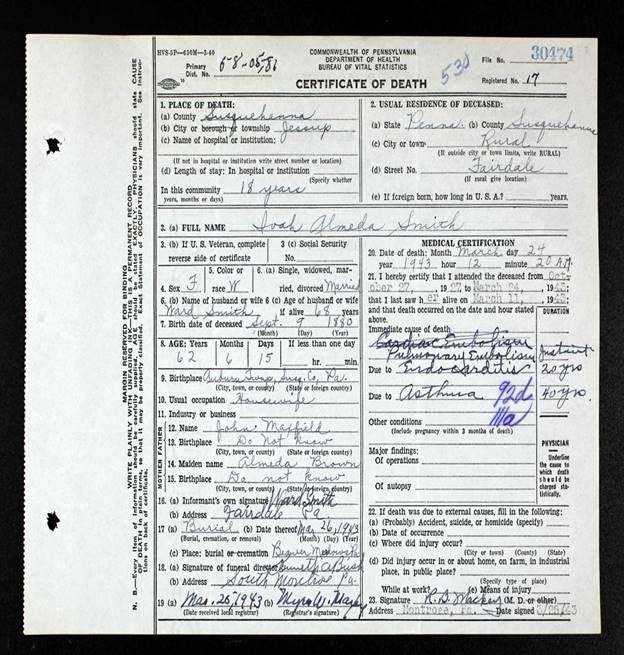 HVS-5P—630M—3-40
Primary Dist. No. 58-05,81
COMMONWEALTH OF PENNSYLVANIA
DEPARTMENT OF HEALTH
BUREAU OF VITAL STATISTICS
CERTIFICATE OF DEATH
530
File No. 30474
Registered No. 17
1. PLACE OF DEATH:
(a) County Susquehanna
(b) City or borough or township Jessup
(c) Name of hospital or institution:
(If not in hospital or institution write street number or location)
(d) Length of stay: In hospital or institution
(Specify whether
In this community 18 years
years, months or days)
2. USUAL RESIDENCE OF DECEASED:
(a) State Penna. (b) County Susquehanna
(c) City or town Rural
(If outside city or town limits, write RURAL)
(d) Street No. Fairdale
(If rural give location)
(e) If foreign born, how long in U. S. A.? years.
3. (a) FULL NAME Ivah Almeda Smith
3. (b) If U. S. Veteran, complete reverse side of certificate
3 (c) Social Security No.
4. Sex F
5. Color or race W
6 (a) Single, widowed, married, divorced Married
6. (b) Name of husband or wife Ward Smith
6 (c) Age of husband or wife if alive 68 years
7. Birth date of deceased Sept. 9 1880
(Month) (Day) (Year)
8. AGE: Years Months Days If less than one day
62 6 15 hr. min.
9. Birthplace Auburn Twnp, Susq. Co, Pa.
(City, town, or county) (State or foreign country)
10. Usual occupation Housewife
11. Industry or business
MOTHER FATHER
12. Name John Maxfield
13. Birthplace Do Not know
(City, town, or county) (State or foreign country)
14. Maiden name Almeda Brown
15. Birthplace Do not know
(City, town, or county) (State or foreign country)
16. (a) Informant's own signature Ward Smith
(b) Address Fairdale Pa.
17 (a) Burial (b) Date thereof Mar 26, 1943
(Burial, cremation, or removal) (Month) (Day) (Year)
(c) Place: burial or cremation Beaver Meadows Pa
18 (a) Signature of funeral director
(b) Address South Montrose Pa.
19 (a) Mar. 25, 1943 (b)
(Date received local registrar) (Registrar's signature)
MEDICAL CERTIFICATION
20. Date of death: Month March day 24
year 1943 hour 12 minute 20 A.M.
21. I hereby certify that I attended the deceased from October 27, 1927, to March 24, 1943;
that I last saw her alive on March 11, 1943;
and that death occurred on the date and hour stated above.
DURATION
Immediate cause of death
Cardiac Embolism
Pulmonary Embolism Instant
Due to Endocarditis 20 yrs
Due to Asthma 40 yrs.
92d
111a
Other conditions
(Include pregnancy within 3 months of death)
Major findings:
Of operations
Of autopsy
PHYSICIAN
Underline the cause to which death should be charged statistically.
22. If death was due to external causes, fill in the following:
(a) (Probably) Accident, suicide, or homicide (specify)
(b) Date of occurrence
(c) Where did injury occur?
(City or town) (County) (State)
(d) Did injury occur in or about home, on farm, in industrial place, in public place?
(Specify type of place)
While at work? (e) Means of injury
23. Signature R. B. Mackey (M. D. or other)
Address Montrose, Pa. Date signed 3/25/43
MARGIN RESERVED FOR BINDING
WRITE PLAINLY WITH UNFADING INK—THIS IS A PERMANENT RECORD
N. B.—Every item of information should be carefully supplied. AGE should be stated EXACTLY. PHYSICIANS should state CAUSE OF DEATH in plain terms, so that it may be properly classified. Exact Statement of OCCUPATION is very important. See instructions on back of certificate.